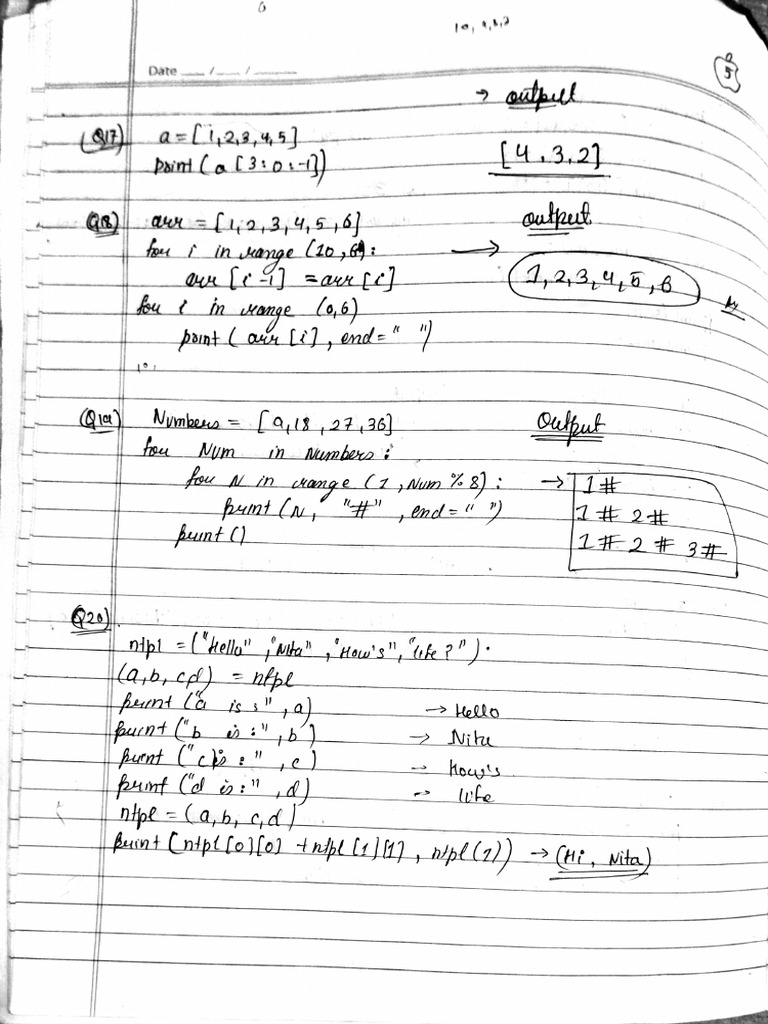 10, 9,8,7
Date __/__/____
5
→ output
(Q17) a = [1,2,3,4,5]
print(a [3:0:-1])
[4,3,2]
Q18) arr = [1,2,3,4,5,6]
output
for i in range (10,6):
→
arr [i-1] = arr[i]
1,2,3,4,5,6
for i in range (0,6)
print( arr[i], end=" ")
(Q19) Numbers = [9,18,27,36]
Output
for Num in Numbers:
for N in range (1, Num % 8):
→ 1#
print (N, "#", end=" ")
1# 2#
print()
1# 2# 3#
Q20)
ntpl = ("Hello", "Nita", "How's", "life?").
(a,b,c,d) = ntpl
print ("a is:", a) → Hello
print ("b is:", b) → Nita
print ("c is:", c) → How's
print ("d is:", d) → life
ntpl = (a,b,c,d)
print (ntpl[0][0] + ntpl[1][1], ntpl(1)) → (Hi, Nita)